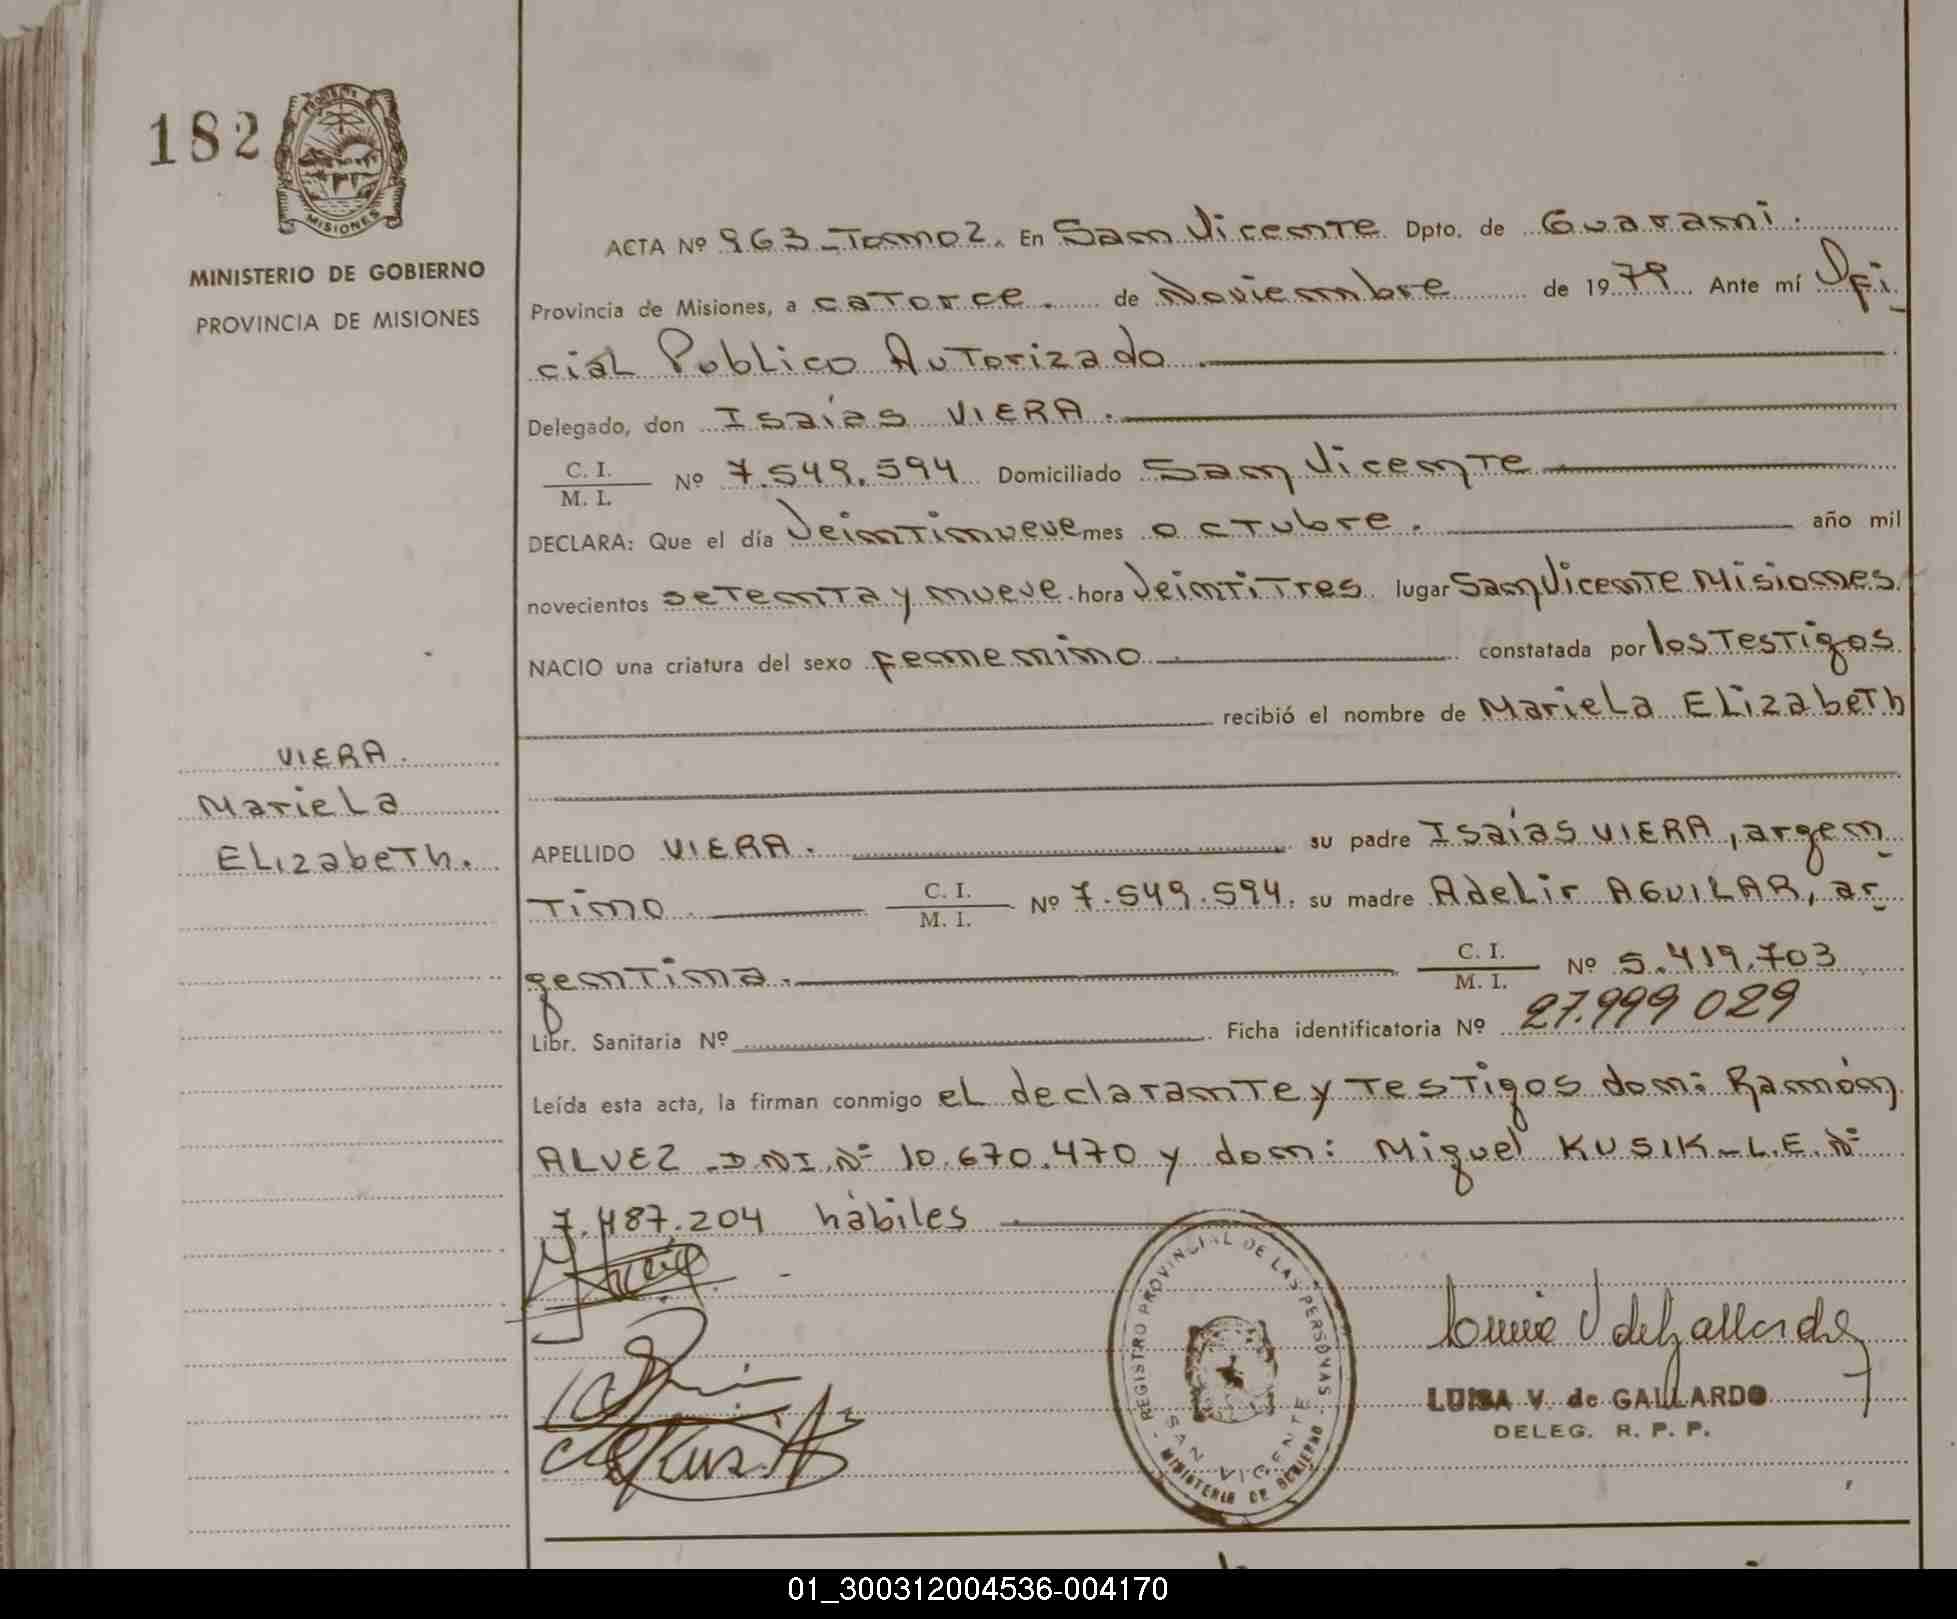 182
MISIONES
MINISTERIO DE GOBIERNO
PROVINCIA DE MISIONES
ACTA Nº 963 - Tomo 2. En San Vicente Dpto. de Guarani.
Provincia de Misiones, a catorce. de Noviembre de 1979 Ante mí Ofi-
cial Publico Autorizado
Delegado, don Isaías VIERA.
C. I.
M. I. Nº 7.549.594 Domiciliado San Vicente
DECLARA: Que el día Veintinueve mes octubre. año mil
novecientos setenta y nueve. hora Veintitres. lugar San Vicente Misiones.
NACIO una criatura del sexo femenino constatada por los Testigos
recibió el nombre de Mariela Elizabeth
VIERA.
Mariela
Elizabeth.
APELLIDO VIERA. su padre Isaías VIERA, argen-
tino C. I.
M. I. Nº 7.549.594. su madre Adelir AGUILAR, ar-
gentina. C. I.
M. I. Nº 5.419.703
Libr. Sanitaria Nº Ficha identificatoria Nº 27.999 029
Leída esta acta, la firman conmigo el declarante y testigos don: Ramón
ALVEZ - D.N.I. Nº 10.670.470 y don: Miguel KUSIK - L.E. Nº
7.487.204 hábiles
REGISTRO PROVINCIAL DE LAS PERSONAS
SAN VICENTE
MINISTERIO DE GOBIERNO
LUISA V. de GALLARDO
DELEG. R. P. P.
01_300312004536-004170